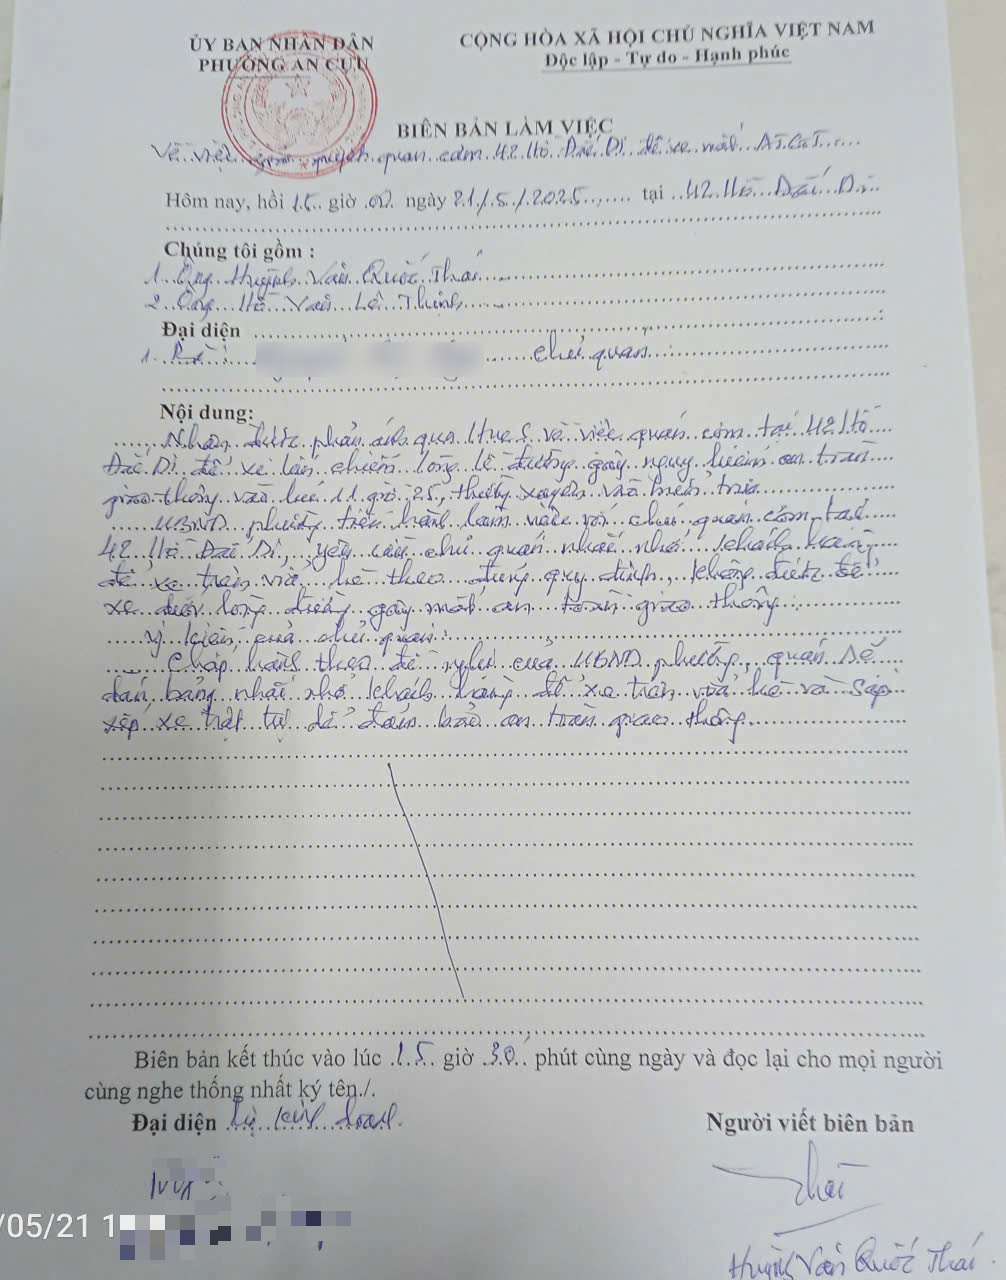 ỦY BAN NHÂN DÂN
PHƯỜNG AN CỰU
CỘNG HÒA XÃ HỘI CHỦ NGHĨA VIỆT NAM
Độc lập - Tự do - Hạnh phúc
BIÊN BẢN LÀM VIỆC
Về việc quán cơm 42 Hồ Đắc Di để xe mất ATGT
Hôm nay, hồi 15 giờ 00 ngày 21/5/2025, tại 42 Hồ Đắc Di
Chúng tôi gồm :
1. Ông Huỳnh Văn Quốc Thái
2. Ông Hồ Văn Lê Thịnh
Đại diện
1. Bà: chủ quán
Nội dung:
Nhận được phản ánh qua Hue S về việc quán cơm tại 42 Hồ
Đắc Di để xe lấn chiếm lòng lề đường gây nguy hiểm an toàn
giao thông vào lúc 11 giờ 25, thường xuyên vào buổi trưa
UBND phường tiến hành làm việc với chủ quán cơm tại
42 Hồ Đắc Di, yêu cầu chủ quán nhắc nhở khách hàng
để xe trên vỉa hè theo đúng quy định, không được để
xe dưới lòng đường gây mất an toàn giao thông
Ý kiến của chủ quán:
Chấp hành theo đề nghị của UBND phường, quán sẽ
dán bảng nhắc nhở khách hàng để xe trên vỉa hè và sắp
xếp xe trật tự để đảm bảo an toàn giao thông
Biên bản kết thúc vào lúc 15 giờ 30 phút cùng ngày và đọc lại cho mọi người
cùng nghe thống nhất ký tên./.
Đại diện hộ kinh doanh
Người viết biên bản
Thái
Huỳnh Văn Quốc Thái
/05/21 1